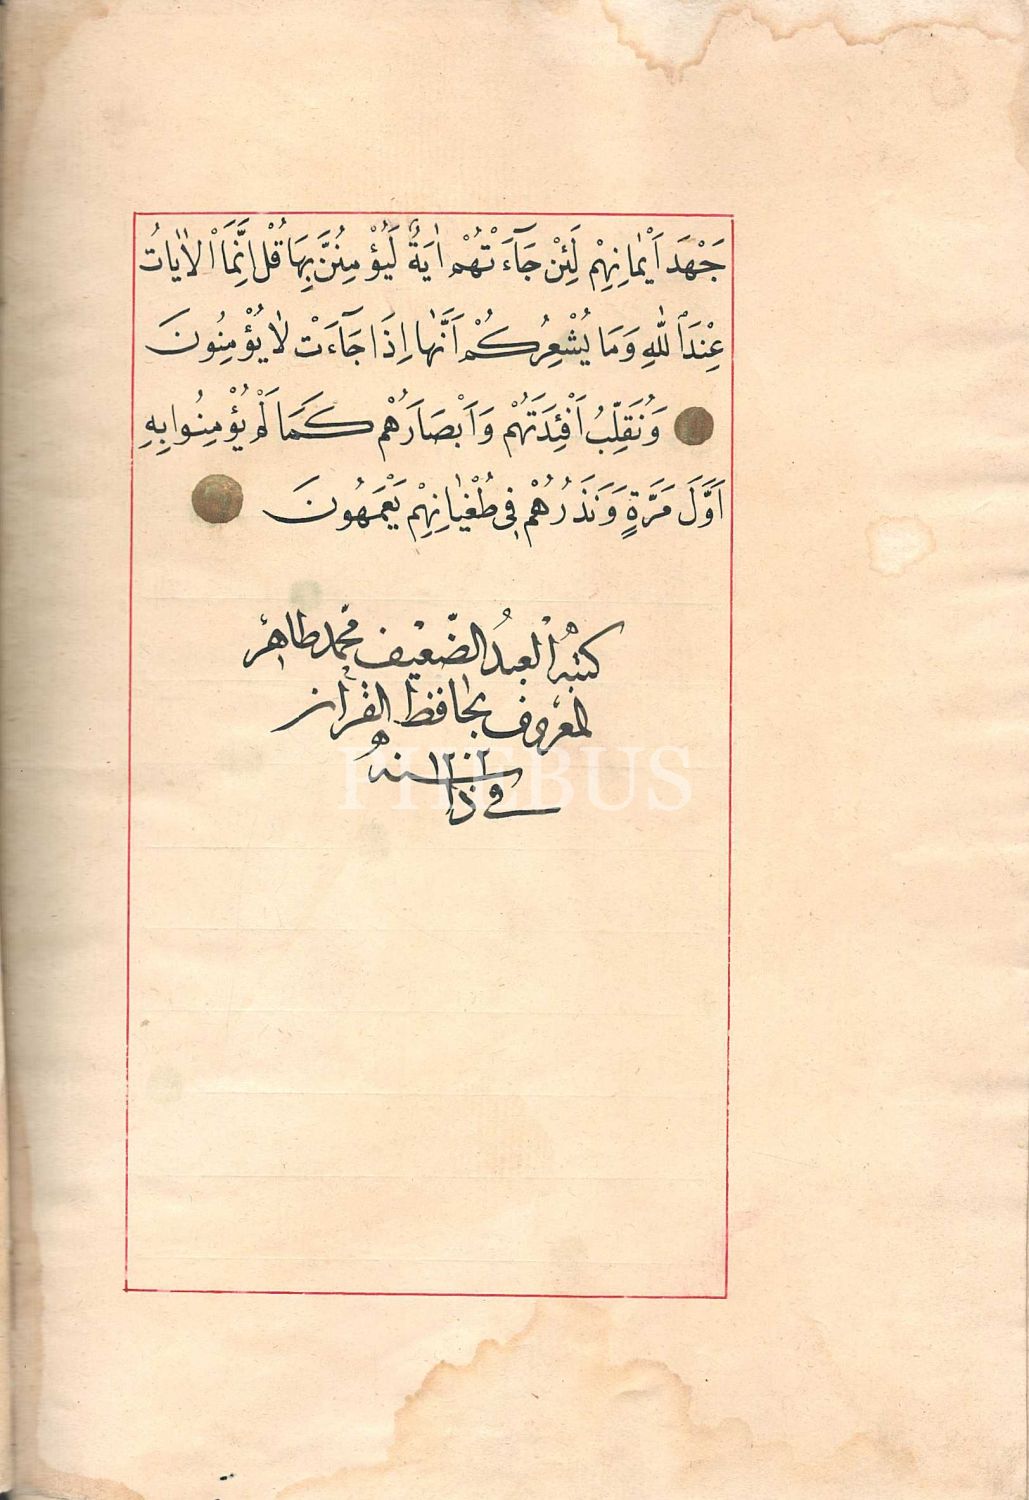 جَهْدَ اَيْمَانِهِمْ لَئِنْ جَآءَتْهُمْ اٰيَةٌ لَيُؤْمِنُنَّ بِهَا قُلْ اِنَّمَا الْاٰيَاتُ
عِنْدَ اللّٰهِ وَمَا يُشْعِرُكُمْ اَنَّهَا اِذَا جَآءَتْ لَا يُؤْمِنُونَ
وَنُقَلِّبُ اَفْئِدَتَهُمْ وَاَبْصَارَهُمْ كَمَا لَمْ يُؤْمِنُوا بِهِ
اَوَّلَ مَرَّةٍ وَنَذَرُهُمْ فِى طُغْيَانِهِمْ يَعْمَهُونَ
كتبه العبد الضّعيف محمد طاهر
المعروف بحافظ القرآن
فى سنه
PHEBUS